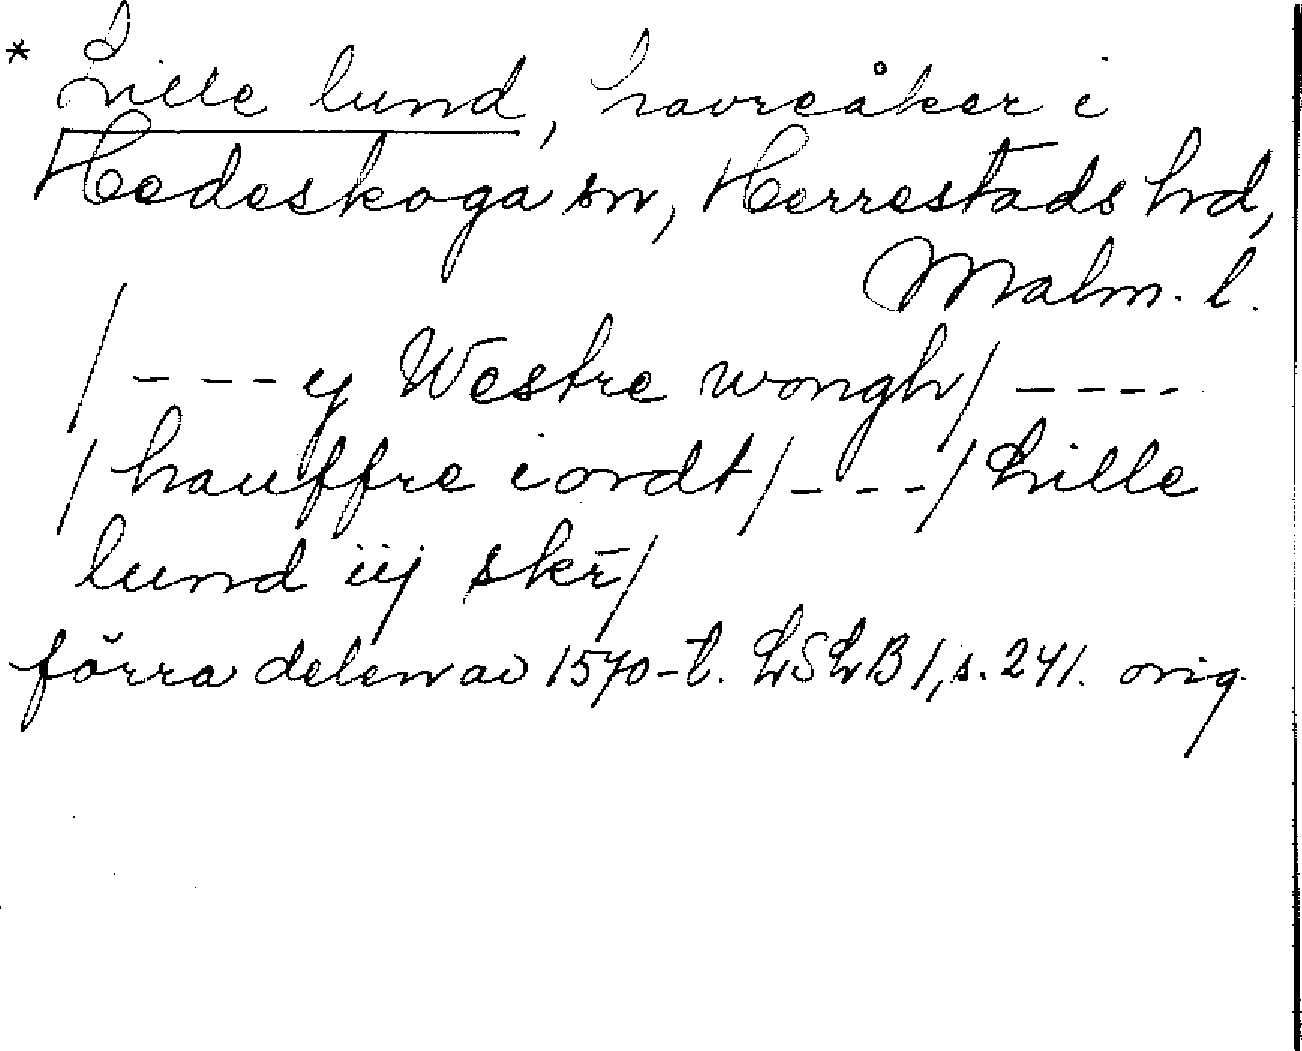 * Lille lund, havreåker i
Hedeskoga sn, Herrestads hd,
Malm. l.
/ - - - y Westre wongh / - - - -
/ hauffre iordt / - - - / Lille
lund iij skr̄ /
förra delen av 1570-t. LSLB 1, s. 241. orig.